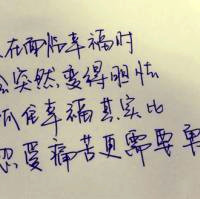 在面临幸福时
会突然变得胆怯
抓住幸福其实比
忍受痛苦更需要勇